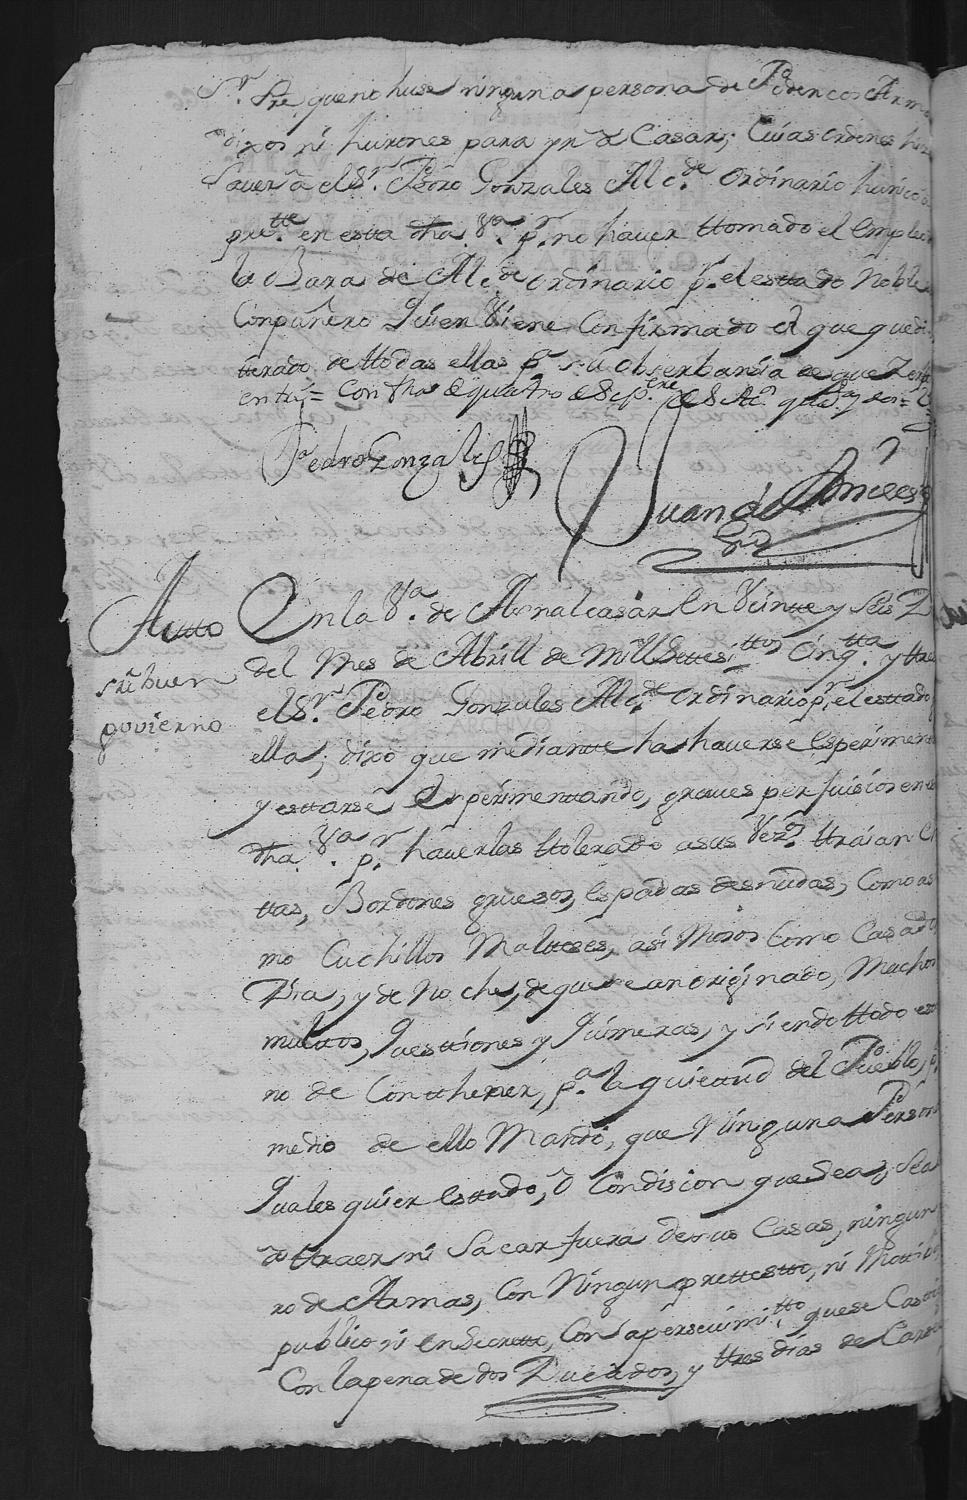 Sre. que no huse ninguna persona de Podencos Arma
dixos ni hurones para yr a Casar; Cuias ordenes hize
Saver a el Sr. Pedro Gonzales Alcde. ordinario hunico a
prette. en esta dha Va. pr. no haver ttomado el Empleo
la Bara de Alcde. ordinario pr. el esttado Noble
Conpañero Quien Viene Confirmado el que quedi
tterado de ttodas ellas pa. su obserbansia de que Zert
Con fha de quatro de Sepbre.
Pedro Gonzales
Juan de
Autto
sre. buen
govierno
En la Va. de Aznalcasar En Veintte y Seis D
del Mes de Abrill de Mill Settesittos Cinqtta. y ttres
el Sr. Pedro Gonzales Alcde. ordinario pr. el esttado
ella; dixo que mediantte ha haverse Esperiment
y esttarse Experimenttando, graves perjuisios en es
dha Va. pr. haverlas ttolerado a sus Vezos. ttraian
ttas, Bordones gruesos, Espadas desnudas, Como as
mo Cuchillos Maltteses, asi Mosos Como Casado
Dia, y de Noche, de que se an originado, Muchos
multtos, Questtiones y Quimeras, y siendo ttodo es
no de Conttherier, pa. la quiettud del Pueblo, p
medio de ello Mando, que Ninguna Person
Quales quier Esttado, o Condision que Sea, Sea
do ttraer ni Sacar fuera de sus Casas, ningun
ro de Armas, Con Ningun prettestto, ni Mottib
publico ni en Secretto, Con apersevimitto. que se Cas
Con la pena de dos Ducados, y ttres dias de Carz